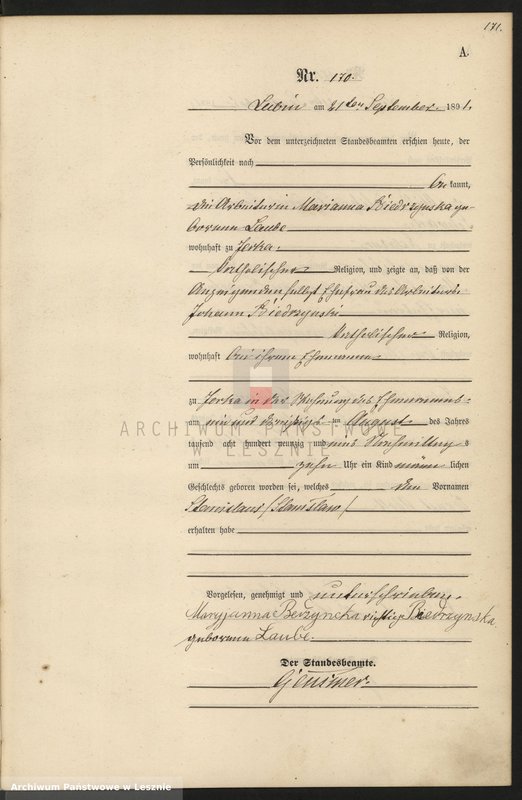 171.
A.
Nr. 170.
Lubin am 21ten September 1891.
Vor dem unterzeichneten Standesbeamten erschien heute, der
Persönlichkeit nach
bekannt,
die Arbeiterin Marianna Biedrzynska ge-
borene Laube
wohnhaft zu Jerka
katholischer Religion, und zeigte an, daß von der
Anzeigenden selbst Ehefrau des Arbeiters
Johann Biedrzynski
katholischer Religion,
wohnhaft bei ihrem Ehemanne
zu Jerka in der Wohnung des Ehemannes
am ein und dreißigst en August des Jahres
tausend acht hundert neunzig und eins Vormittags
um zehn Uhr ein Kind männlichen
Geschlechts geboren worden sei, welches den Vornamen
Stanislaus /Stanisław/
erhalten habe
Vorgelesen, genehmigt und unterschrieben.
Maryjanna Berzyncka richtige Biedrzynska
geborene Laube.
Der Standesbeamte.
ARCHIWUM PAŃSTWOWE
W LESZNIE
Archiwum Państwowe w Lesznie